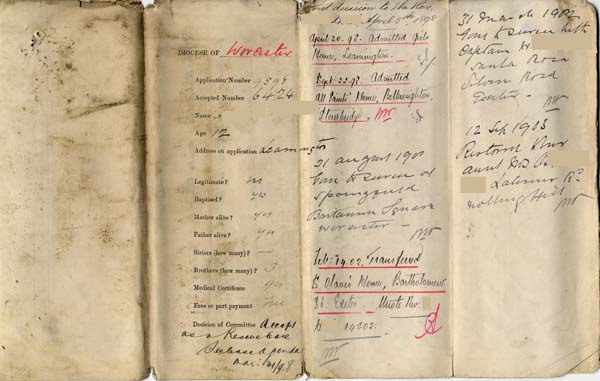 DIOCESE OF Worcester
Application Number 9594
Accepted Number 6424
Name
Age 12
Address on application Leamington
Legitimate? no
Baptised? yes
Mother alive? yes
Father alive? yes
Sisters (how many)? —
Brothers (how many)? 3
Medical Certificate yes
Free or part payment free
Decision of Committee Accept
as a Rescue case
Mar: 31/98
decision to the Rev.
April 5th 1898
April 20. 98. Admitted
Home, Leamington.
Sept: 22. 98. Admitted
All Saints' Home, Belbroughton,
Stourbridge.
21 August 1901
Gone to Service at
Britannia Square
Worcester
Feb: 14. 02. Transferred
St Olave's Home, Bartholomew
St. Exeter. Wrote Rev:
14202.
31 March 1902
Gone to Service with
Captain
Santa Rosa
Road
Exeter.
12 Sep 1905
Restored
aunt Mrs
Latimer Rd
Notting Hill